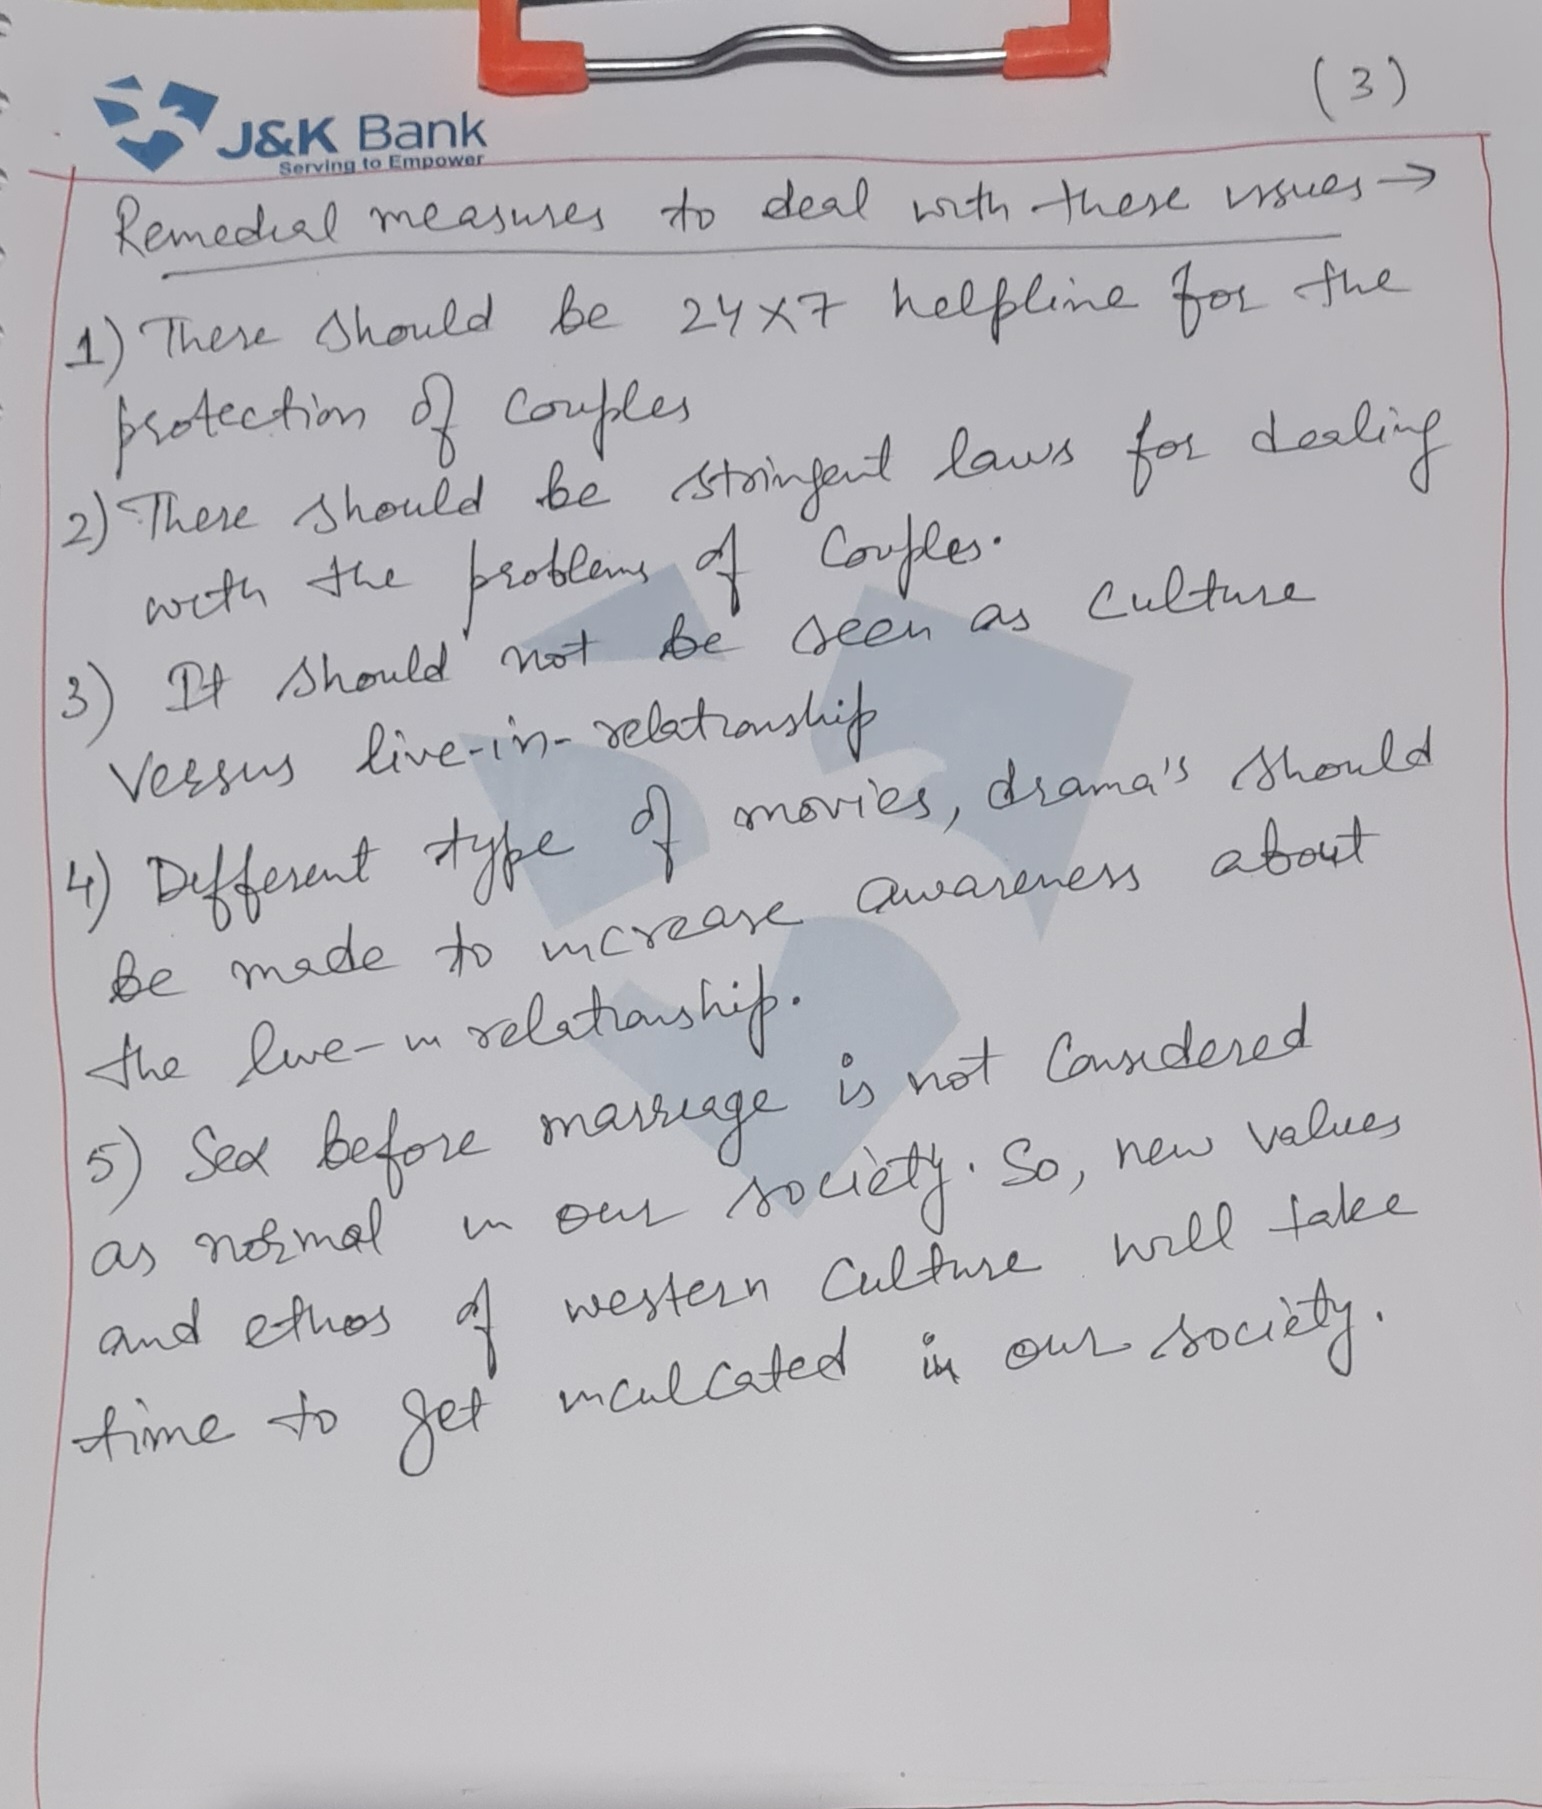 (3)
J&K Bank
Serving to Empower
Remedial measures to deal with these issues →
1) There should be 24x7 helpline for the
protection of couples
2) There should be stringent laws for dealing
with the problems of couples.
3) It should not be seen as culture
versus live-in-relationship
4) Different type of movies, drama's should
be made to increase awareness about
the live-in relationship.
5) Sex before marriage is not considered
as normal in our society. So, new values
and ethos of western culture will take
time to get inculcated in our society.